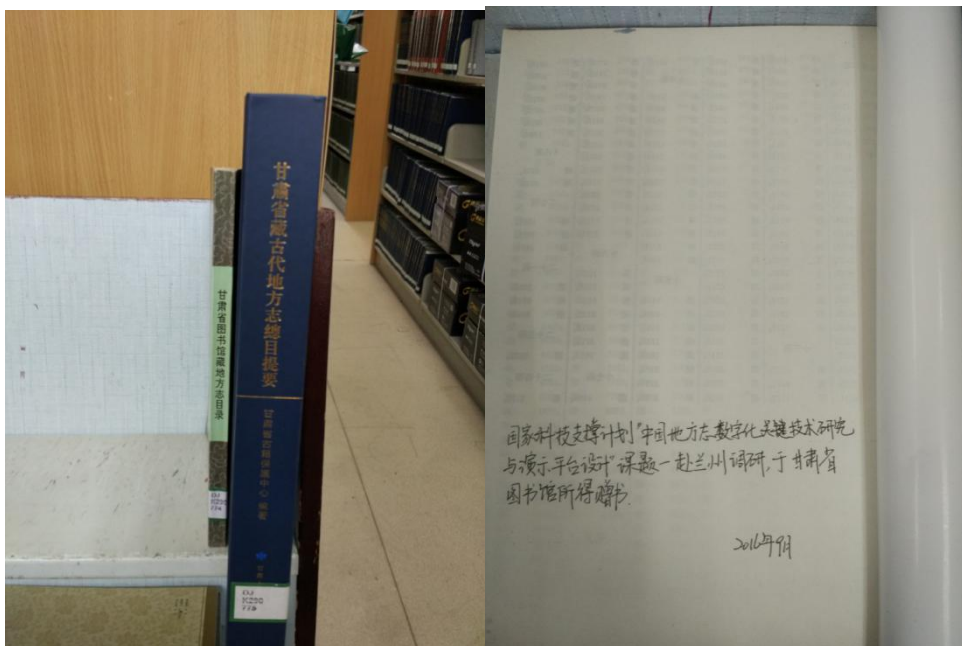 甘肃省藏古代地方志總目提要
甘肃省古籍保護中心 編著
甘肃省图书馆藏地方志目录
国家科技支撑计划“中国地方志数字化关键技术研究
与演示平台设计”课题一赴兰州调研,于甘肃省
图书馆所得赠书.
2016年9月